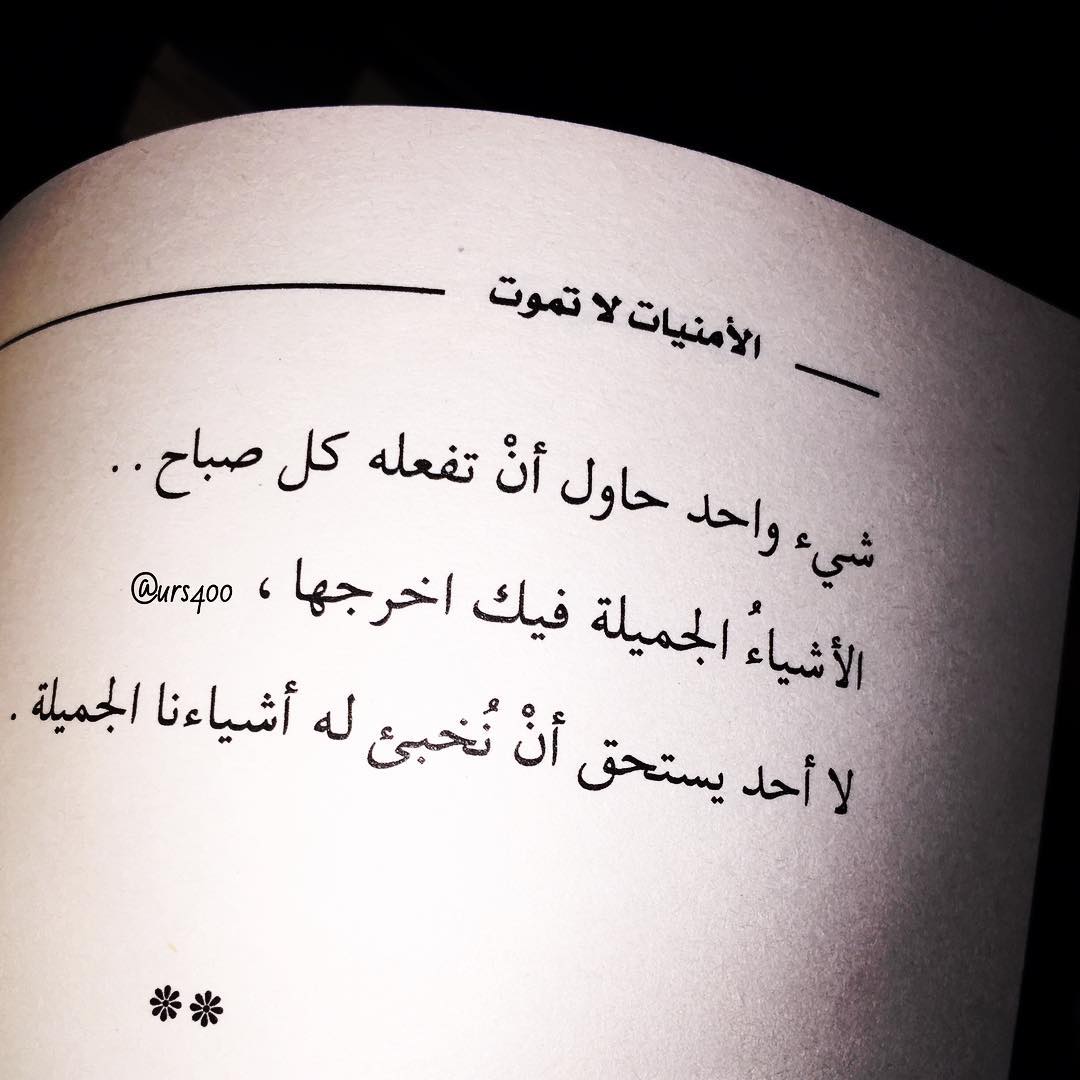 الأمنيات لا تموت
شيء واحد حاول أنْ تفعله كل صباح ..
الأشياءُ الجميلة فيك اخرجها ،
@urs400
لا أحد يستحق أنْ نُخبئ له أشياءنا الجميلة .